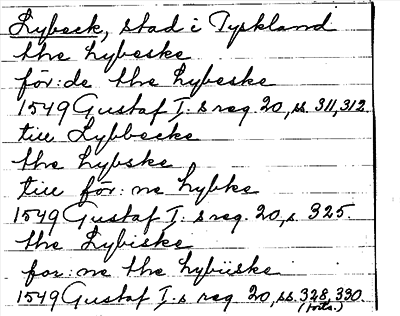 Lybeck, stad i Tyskland
the lybeske
för:de the Lybeske
1549 Gustaf I:s reg. 20, ss. 311, 312.
till Lybbecke
the lybske
till för:ne lybke
1549 Gustaf I:s reg. 20, s. 325.
the Lybiske
for:ne the lybiiske
1549 Gustaf I:s reg 20, ss. 328, 330.
(forts.)